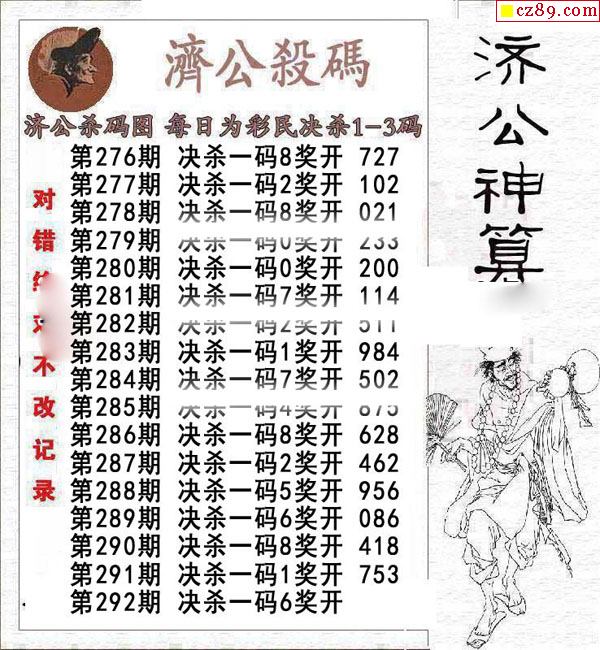 cz89.com
濟公殺碼
济公神算
济公杀码图 每日为彩民决杀1-3码
第276期 决杀一码8奖开 727
第277期 决杀一码2奖开 102
第278期 决杀一码8奖开 021
第279期 决杀一码0奖开 233
第280期 决杀一码0奖开 200
第281期 决杀一码7奖开 114
第282期 决杀一码2奖开 511
第283期 决杀一码1奖开 984
第284期 决杀一码7奖开 502
第285期 决杀一码4奖开 875
第286期 决杀一码8奖开 628
第287期 决杀一码2奖开 462
第288期 决杀一码5奖开 956
第289期 决杀一码6奖开 086
第290期 决杀一码8奖开 418
第291期 决杀一码1奖开 753
第292期 决杀一码6奖开
对错 不改记录